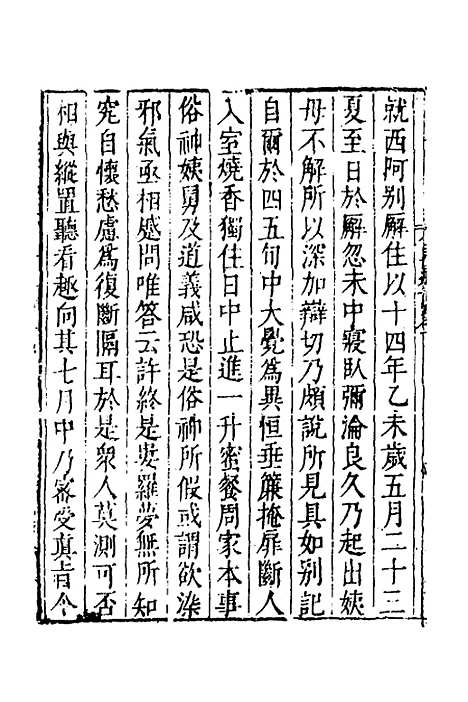 就西阿别廨住以十四年乙未歲五月二十三
夏至日於廨忽未中寢臥彌淪良久乃起出姨
母不解所以深加辯切乃頗說所見具如别記
自爾於四五旬中大覺為異恒垂簾掩扉斷人
入室燒香獨住日中止進一升蜜餐周家本事
俗神姨舅及道義咸恐是俗神所假或謂欲染
邪氣亟相蹙問唯答云許終是婁羅夢無所知
究自懷愁慮為復斷隔耳於是衆人莫測可否
相與縱置聽看趣向其七月中乃密受真旨令